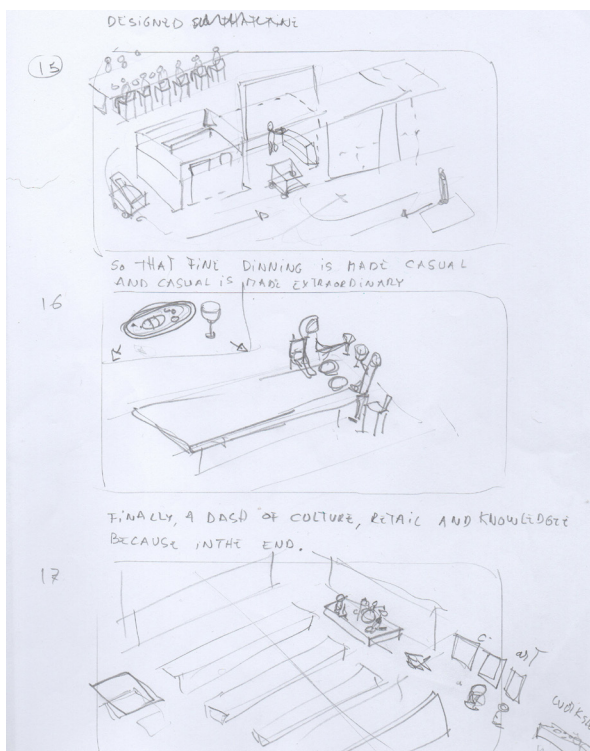 DESIGNED
15
SO THAT FINE DINNING IS MADE CASUAL
AND CASUAL IS MADE EXTRAORDINARY
16
FINALLY, A DASH OF CULTURE, RETAIL AND KNOWLEDGE
BECAUSE IN THE END.
17
C
ART